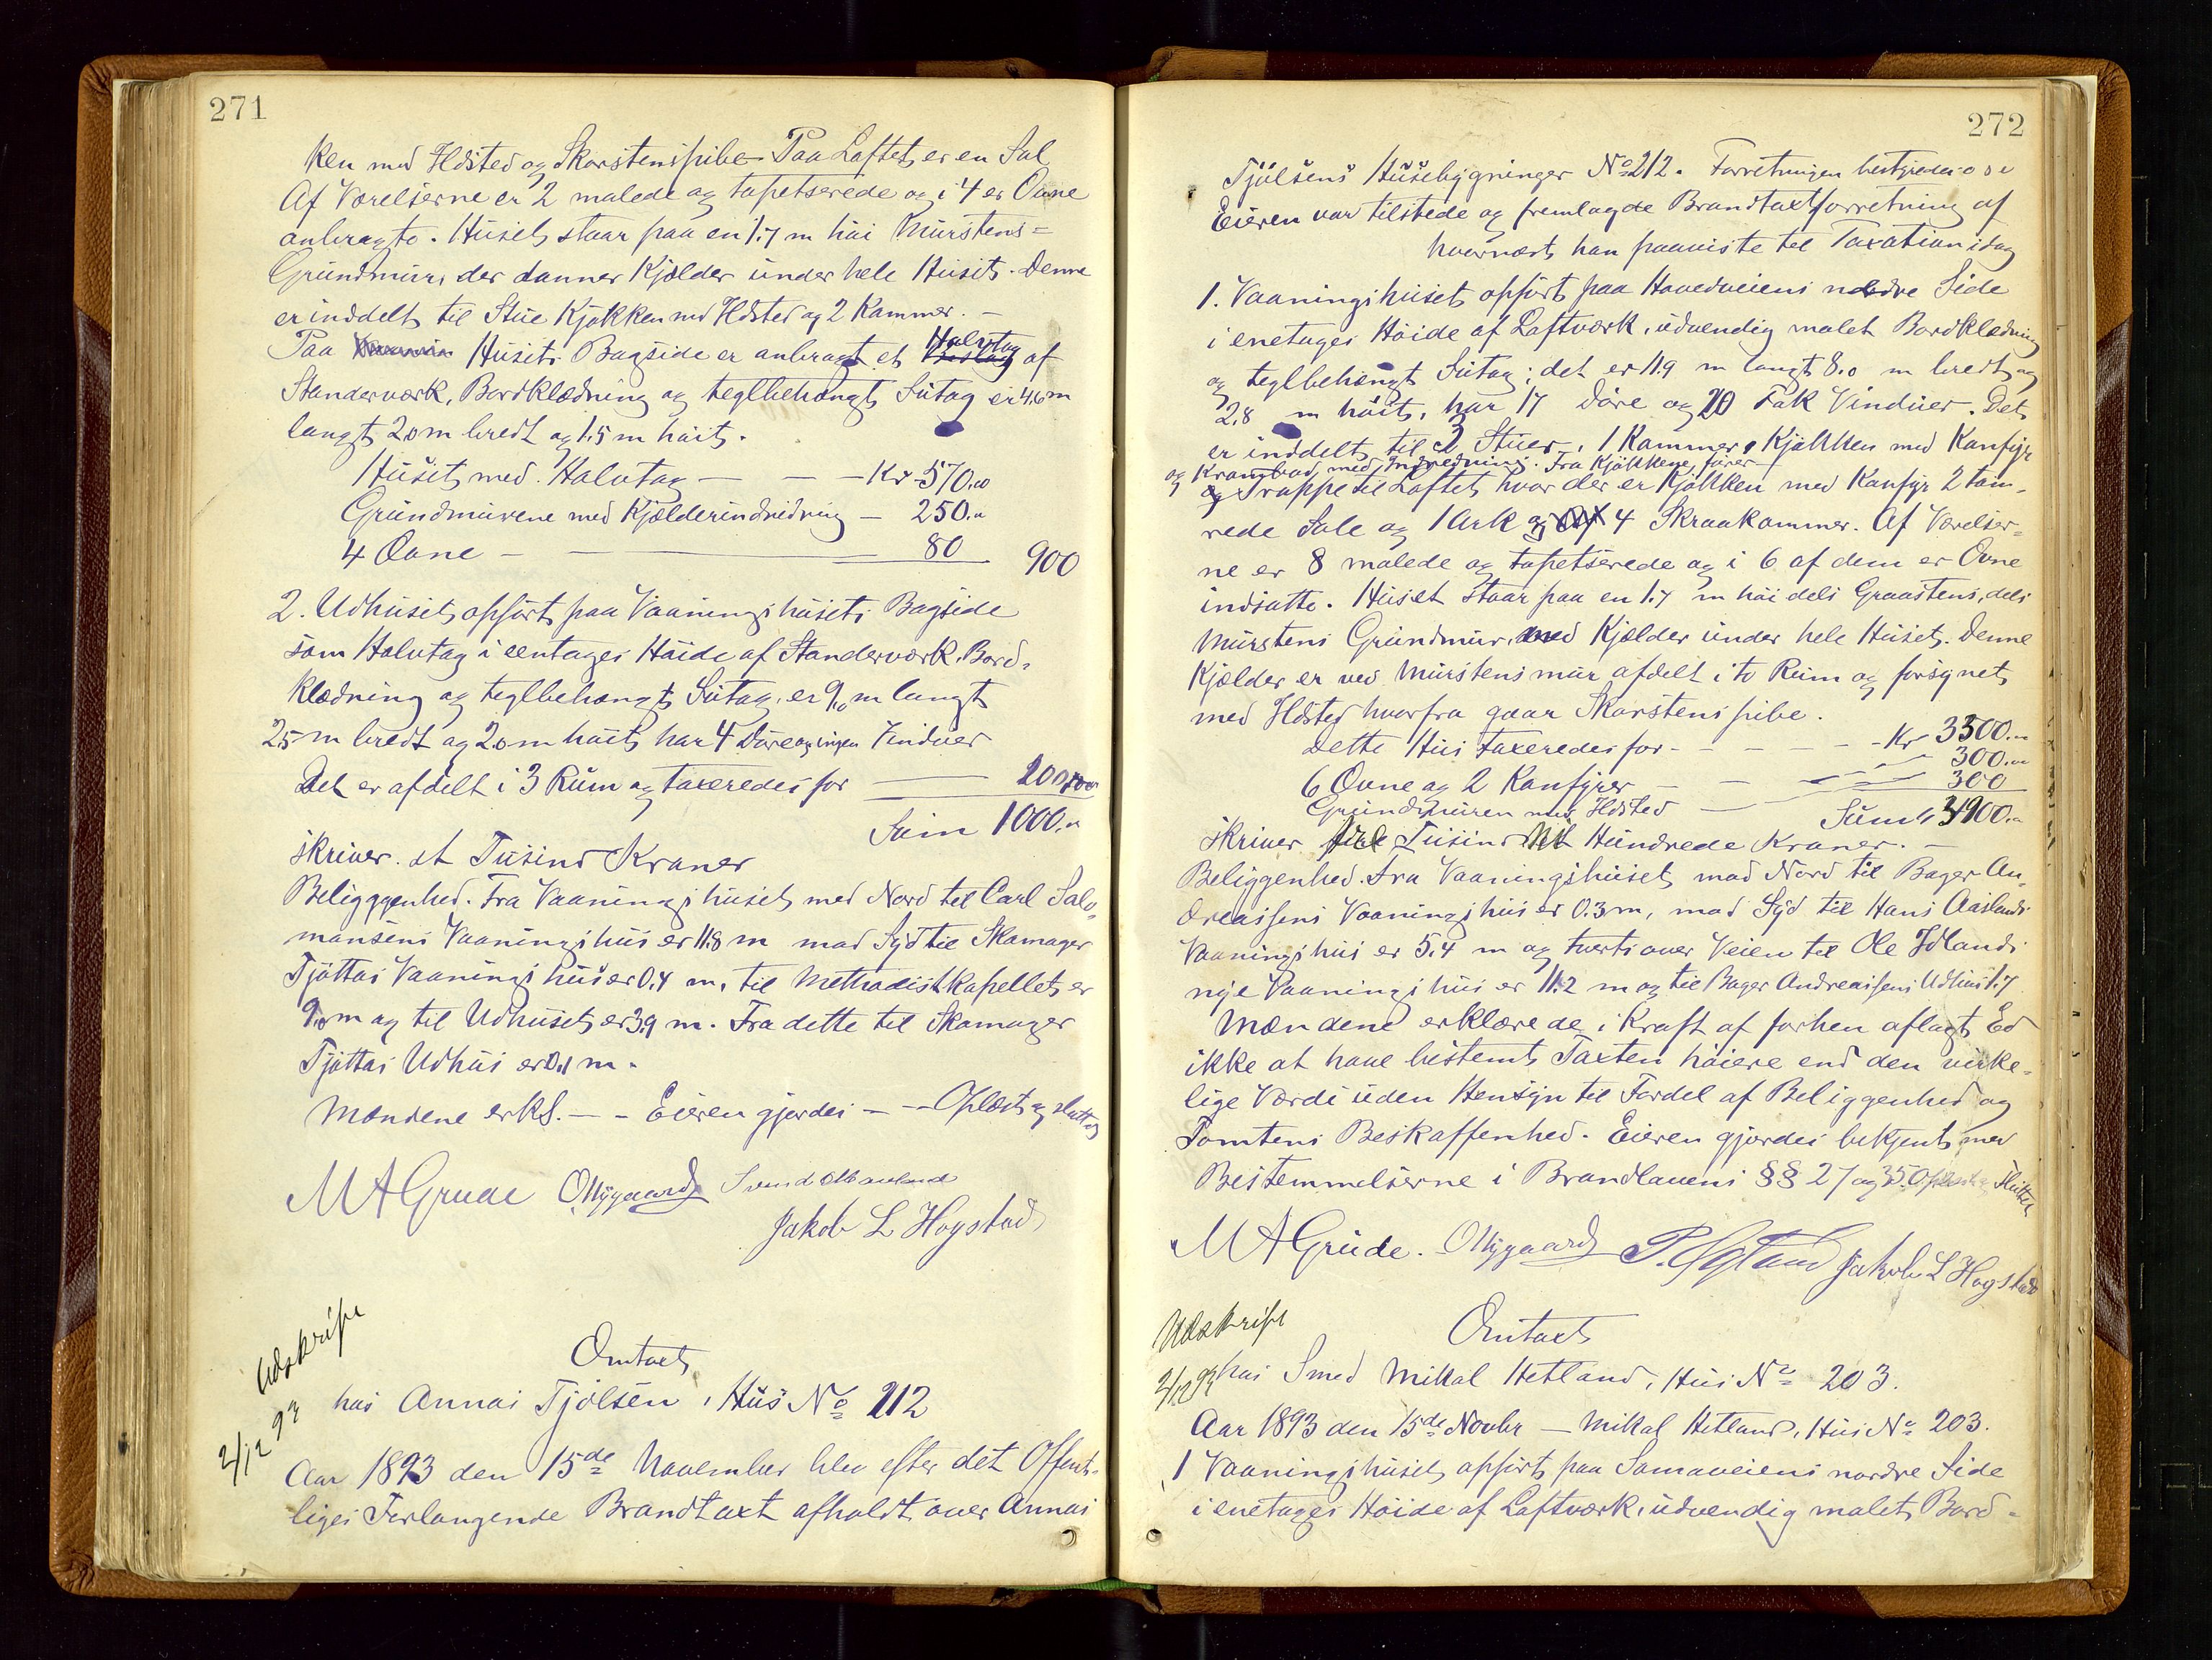 271
ken med Ildsted og Skorstenspibe. Paa Loftet er en Sal
Af Værelserne er 2 malede og tapetserede og i 4 er Ovne
anbragte. Huset staar paa en 1.7 m høi Murstens=
Grundmur, der danner Kjælder under hele Huset. Denne
er inddelt til Stue Kjøkken med Ildsted og 2 Kammer. –
Paa Husets Bagside er anbragt et Halvtag af
Standerværk, Bordklædning og teglbehængt Sutag er 4.6 m
langt 2.0 m bredt og 1.5 m høit.
Huset med Halvtag — — — Kr 570.00
Grundmurene med Kjælderindredning — 250.„
4 Ovne — — 80 900
2. Udhuset opført paa Vaaningshusets Bagside
som Halvtag i eentages Høide af Standerværk, Bord=
klædning og teglbehængt Sutag, er 9.0 m langt
2.5 m bredt og 2.0 m høit har 4 Døre og ingen Vinduer
Det er afdelt i 3 Rum og taxeredes for — 100.00
Sum 1000.„
skriver et Tusind Kroner
Beliggenhed. Fra Vaaningshuset mod Nord til Carl Salo=
monsens Vaaningshus er 11.8 m mod Syd til Skomager
Tjøttas Vaaningshus er 0.4 m, til Methodistkapellet er
9.0 m og til Udhuset er 3.9 m. Fra dette til Skomager
Tjøttas Udhus er 0.1 m.
Mændene erkl. — – Eieren gjordes — — Oplæst og sluttet
M A Grude O Nygaard Svend
Jakob L Hogstad
Udskrift
2/12 93
Omtaxt
hos Annas Tjølsen, Hus No 212
Aar 1893 den 15de November blev efter det Offent=
liges Forlangende Brandtaxt afholdt over Annas
272
Tjølsens Husebygninger No 212. Forretningen bestyredes o s v
Eieren var tilstede og fremlagde Brandtaxtforretning af
hvornæst han paaviste til Taxation idag
1. Vaaningshuset opført paa Hovedveiens nedre Side
i enetages Høide af Laftværk, udvendig malet Bordklædning
og teglbehængt Sutag; det er 11.9 m langt 8.0 m bredt og
2.8 m høit, har 17 Døre og 20 Fak Vinduer. Det
er inddelt til 3 Stuer, 1 Kammer, Kjøkken med Komfyr
og Krambod med Indredning. Fra Kjøkkene fører
og Trappe til Loftet hvor der er Kjøkken med Komfyr 2 tøm=
rede Sale og 1 Ark og 4 Skraakammer. Af Værelser=
ne er 8 malede og tapetserede og i 6 af dem er Ovne
indsatte. Huset staar paa en 1.7 m høi dels Graastens, dels
Murstens Grundmur, med Kjælder under hele Huset. Denne
Kjælder er ved Murstensmur afdelt i to Rum og forsynet
med Ildsted hvorfra gaar Skorstenspibe.
Dette Hus taxeredes for — — — — Kr 3300.„
6 Ovne og 2 Komfyrer — — 300.„
Grundmuren med Ildsted — — 300
Sum 3900.„
skriver Tusind Ni Hundrede Kroner. –
Beliggenhed. Fra Vaaningshuset mod Nord til Bager An=
dreassens Vaaningshus er 0.3 m, mod Syd til Hans Aaslands
Vaaningshus er 5.4 m og tvertsover Veien til Ole Idlands
nye Vaaningshus er 11.2 m og til Bager Andreassens Udhus 1.7
Mændene erklærede i Kraft af forhen aflagt Ed
ikke at have bestemt Taxten høiere end den virke=
lige Værdi uden Hensyn til Fordel af Beliggenhed og
Tomtens Beskaffenhed. Eieren gjordes bekjent med
Bestemmelserne i Brandlovens §§ 27 og 35. Oplæst Sluttet
M A Grude. O Nygaard Jakob L Hogstad
Udskrift
2/12 93
Omtaxt
hos Smed Mikal Hetland, Hus No 203.
Aar 1893 den 15de Novbr — Mikal Hetland, Hus No 203.
1 Vaaningshuset opført paa Somaveiens nordre Side
i enetages Høide af Laftværk, udvendig malet Bord=